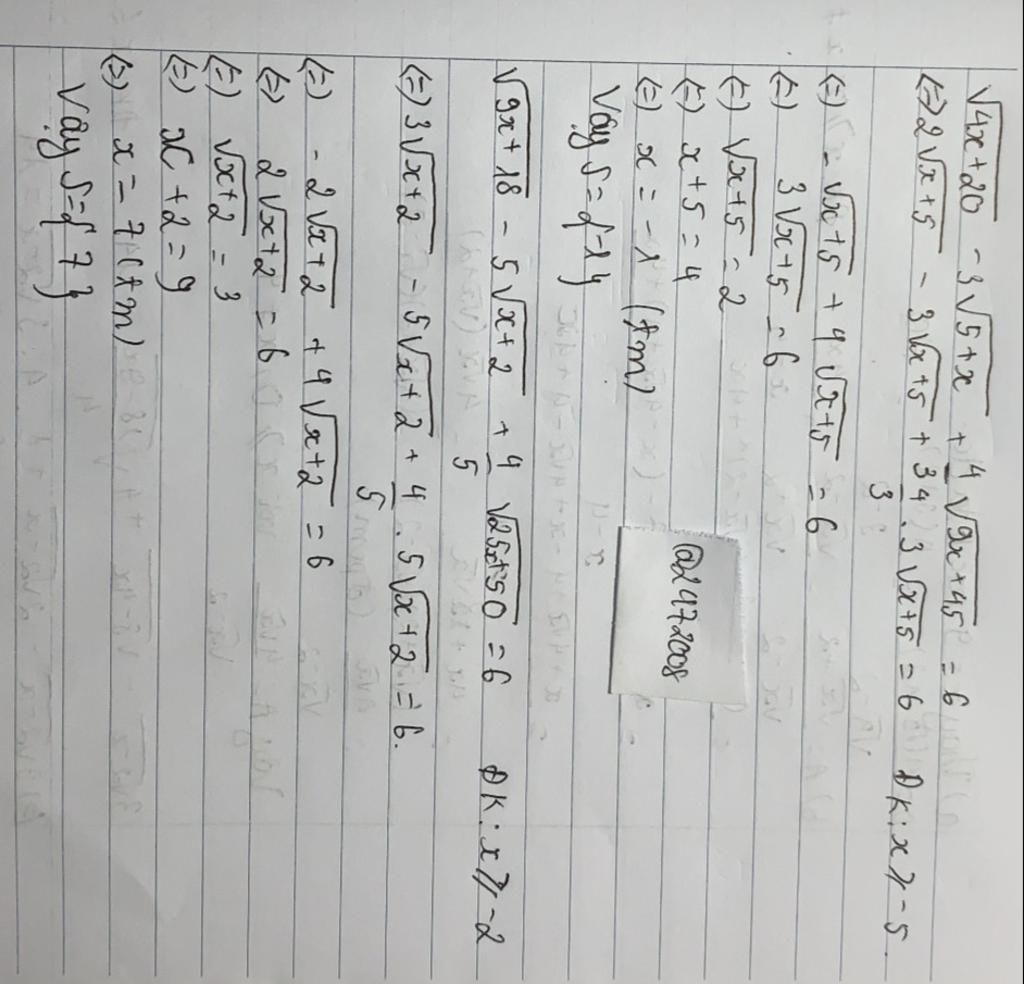 √4x+20 - 3√5+x + 4/3 √9x+45 = 6
(=) 2√x+5 - 3√x+5 + 4/3 . 3√x+5 = 6 ĐK: x ≥ -5
(=) - √x+5 + 4√x+5 = 6
(=) 3√x+5 = 6
(=) √x+5 = 2
(=) x+5 = 4
(=) x = -1 (tm)
Vậy S={-1}
√9x+18 - 5√x+2 + 4/5 √25x+50 = 6 ĐK: x ≥ -2
(=) 3√x+2 - 5√x+2 + 4/5 . 5√x+2 = 6.
(=) - 2√x+2 + 4√x+2 = 6
(=) 2√x+2 = 6
(=) √x+2 = 3
(=) x+2 = 9
(=) x = 7 (tm)
Vậy S={7}
@2472008